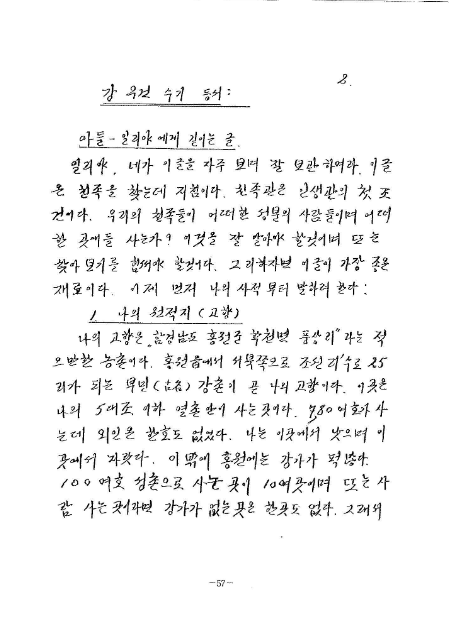 8.
강우건 수기 등서:
아들-일리야에게 길이는 글.
일리야, 네가 이글을 자주 보며 잘 보관하여라, 이글
은 친족을 찾는데 지침이다. 친족관은 인생관의 첫 조
건이다. 우리의 친족들이 어떠한 형분의 사람들이며 어떠
한 곳에들 사는가? 이것을 잘 알아야 할것이며 또는
찾아 보기를 힘써야 할것이다. 그리하자면 이글이 가장 좋은
재료이다. 이제 먼저 나의 사적부터 말하려 한다:
1. 나의 원적지 (고향)
나의 고향은 "함경남도 홍원군 학천면 풍상리"라는 적
으만한 농촌이다. 홍원읍에서 서북쪽으로 조선리수로 25
리가 되는 (古名) 강촌이 곧 나의 고향이다. 이곳은
나의 5대조 이하 열촌만이 사는곳이다. 7,80여호가 사
는데 외인은 한호도 없었다. 나는 이곳에서 낳으며 이
곳에서 자랐다. 이 밖에 홍원에는 강가가 퍽많다.
100여호 성촌으로 사는 곳이 10여곳이며 또는 사
람 사는곳이라면 강가가 없는곳은 한곳도 없다. 그래서
-57-